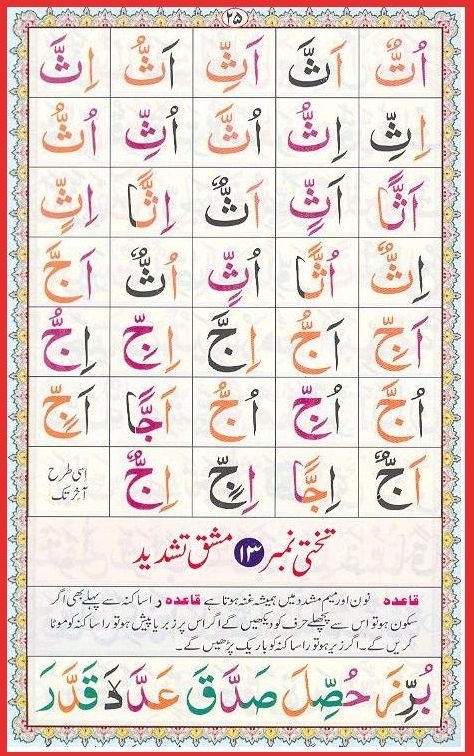 ۲۵
اُتٌّ اَثَّ اَثِّ اَثُّ اِثَّ
اِثِّ اِثُّ اُثَّ اُثِّ اُثُّ
اَثًّا اَثٍّ اَثٌّ اِثًّا اِثٍّ
اِثٌّ اُثًّا اُثٍّ اُثٌّ اَجَّ
اَجِّ اَجُّ اِجَّ اِجِّ اِجُّ
اُجَّ اُجِّ اُجُّ اَجًّا اَجٍّ
اَجٌّ اِجًّا اِجٍّ اِجٌّ اسی طرح
آخر تک
تختی نمبر ۱۳ مشق تشدید
قاعدہ نون اور میم مشدد میں ہمیشہ غنہ ہوتا ہے قاعدہ را ساکنہ سے پہلے بھی اگر
سکون ہو تو اس سے پچھلے حرف کو دیکھیں گے اگر اس پر زبر یا پیش ہو تو را ساکنہ کو موٹا
کریں گے۔ اگر زیر ہو تو را ساکنہ کو باریک پڑھیں گے۔
بُرِّزَ حُصِّلَ صَدَّقَ قَدَّرَ